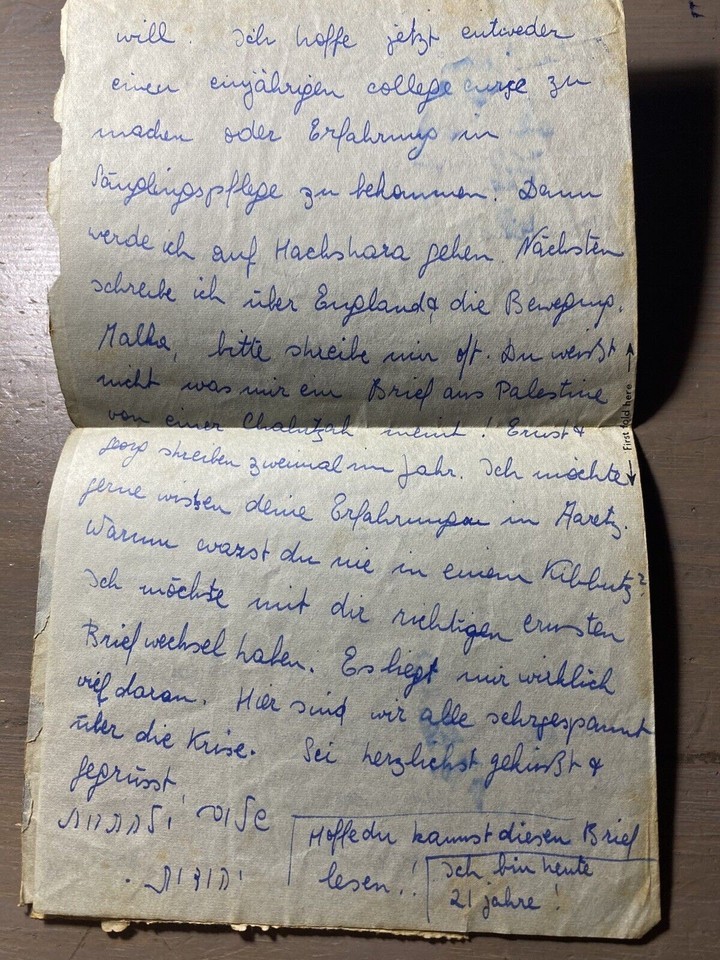 will. Ich hoffe jetzt entweder
einen einjährigen college curse zu
machen oder Erfahrung in
Säuglingspflege zu bekommen. Dann
werde ich auf Hachshara gehen. Nächsten
schreibe ich über England & die Bewegung.
Malka, bitte schreibe mir oft. Du weißt
nicht was mir ein Brief aus Palestine
von einer Chalutzah meint! Ernst &
Georg schreiben zweimal im Jahr. Ich möchte
gerne wissen deine Erfahrungen in Aaretz.
Warum warst du nie in einem Kibbutz?
Ich möchte mit dir richtigen ernsten
Briefwechsel haben. Es liegt mir wirklich
viel daran. Hier sind wir alle sehr gespannt
über die Krise. Sei herzlichst geküßt &
gegrüsst
שלום
יהודית
Hoffe du kannst diesen Brief
lesen!!
Ich bin heute
21 jahre!
First fold here